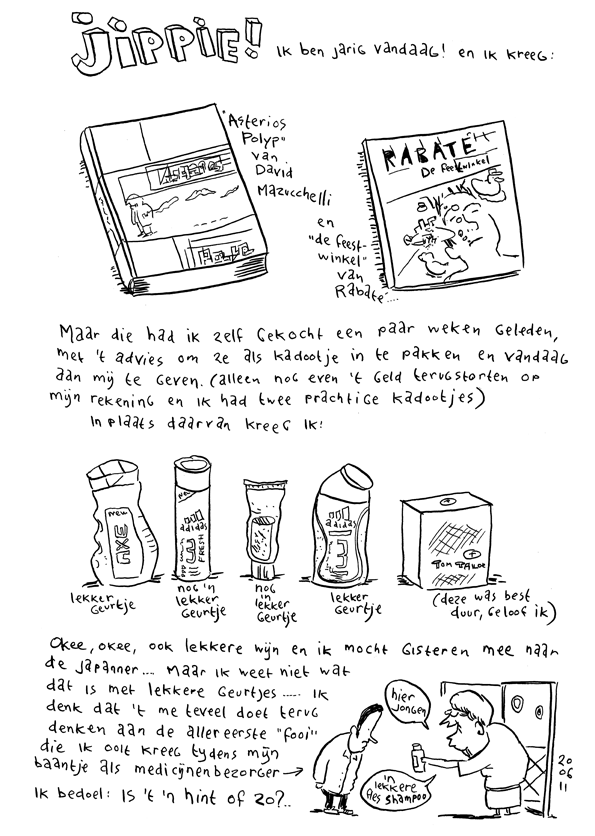 JIPPIE!
Ik ben jarig vandaag! en ik kreeg:
"Asterios
Polyp"
van
David
Mazucchelli
en
"de feest-
winkel"
van
Rabaté....
RABATÉ
De Feestwinkel
Maar die had ik zelf gekocht een paar weken geleden,
met 't advies om ze als kadootje in te pakken en vandaag
aan mij te geven. (alleen nog even 't geld terugstorten op
mijn rekening en ik had twee prachtige kadootjes)
In plaats daarvan kreeg ik:
new
AXE
adidas
3
FRESH
adidas
3
TOM TAILOR
lekker
geurtje
nog 'n
lekker
geurtje
nog
'n
lekker
geurtje
lekker
geurtje
(deze was best
duur, geloof ik)
Okee, okee, ook lekkere wijn en ik mocht gisteren mee naar
de Japanner.... Maar ik weet niet wat
dat is met lekkere geurtjes ..... ik
denk dat 't me teveel doet terug
denken aan de allereerste "fooi"
die ik ooit kreeg tydens mijn
baantje als medicijnenbezorger →
Ik bedoel: Is 't 'n hint of zo?..
hier
jongen
'n
lekkere
fles shampoo
20
06
11